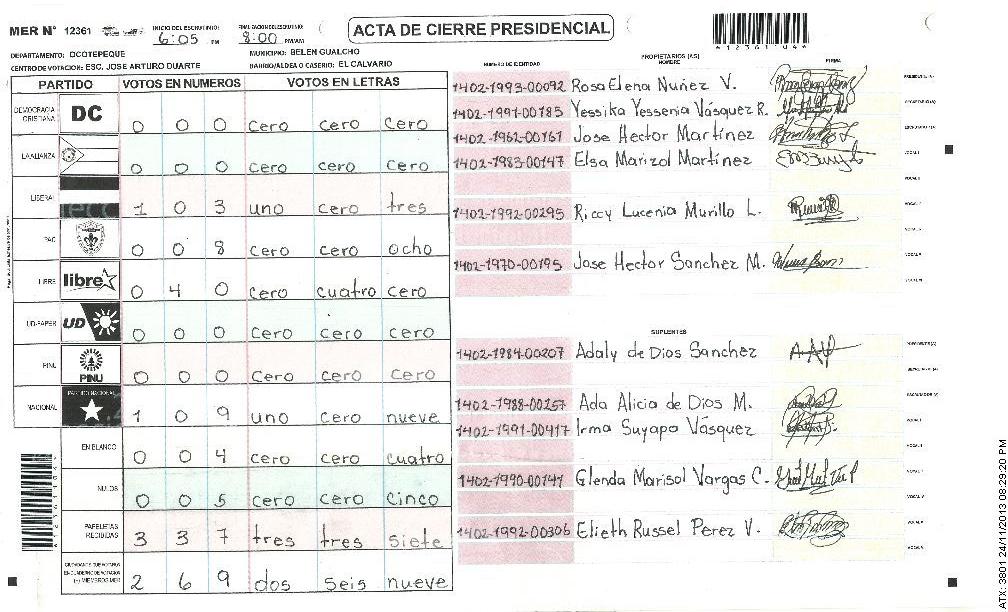 MER Nº 12361 INICIO DEL ESCRUTINIO: 6:05 PM FINALIZACION DEL ESCRUTINIO: 8:00 PM/AM
ACTA DE CIERRE PRESIDENCIAL
DEPARTAMENTO: OCOTEPEQUE MUNICIPIO: BELEN GUALCHO
CENTRO DE VOTACION: ESC. JOSE ARTURO DUARTE BARRIO/ALDEA O CASERIO: EL CALVARIO
PARTIDO VOTOS EN NUMEROS VOTOS EN LETRAS
DEMOCRACIA CRISTIANA DC 0 0 0 cero cero cero
LA ALIANZA 0 0 0 cero cero cero
LIBERAL 1 0 3 uno cero tres
PAC 0 0 8 cero cero ocho
LIBRE libre 0 4 0 cero cuatro cero
UD-FAPER UD 0 0 0 cero cero cero
PINU PINU 0 0 0 cero cero cero
NACIONAL PARTIDO NACIONAL 1 0 9 uno cero nueve
EN BLANCO 0 0 4 cero cero cuatro
NULOS 0 0 5 cero cero cinco
PAPELETAS RECIBIDAS 3 3 7 tres tres siete
2 6 9 dos seis nueve
NUMERO DE IDENTIDAD PROPIETARIOS (AS) NOMBRE FIRMA
1402-1993-00092 Rosa Elena Nuñez V.
1402-1991-00185 Yessika Yessenia Vásquez R.
1402-1962-00161 Jose Hector Martínez
1402-1983-00147 Elsa Marizol Martínez
1402-1992-00295 Riccy Lucenia Murillo L.
1402-1970-00195 Jose Hector Sanchez M.
SUPLENTES
1402-1984-00207 Adaly de Dios Sanchez
1402-1988-00257 Ada Alicia de Dios M.
1402-1991-00417 Irma Suyapo Vásquez
1402-1990-00147 Glenda Marisol Vargas C.
1402-1992-00306 Elieth Russel Perez V.
ATX: 3801 24/11/2013 08:29:20 PM